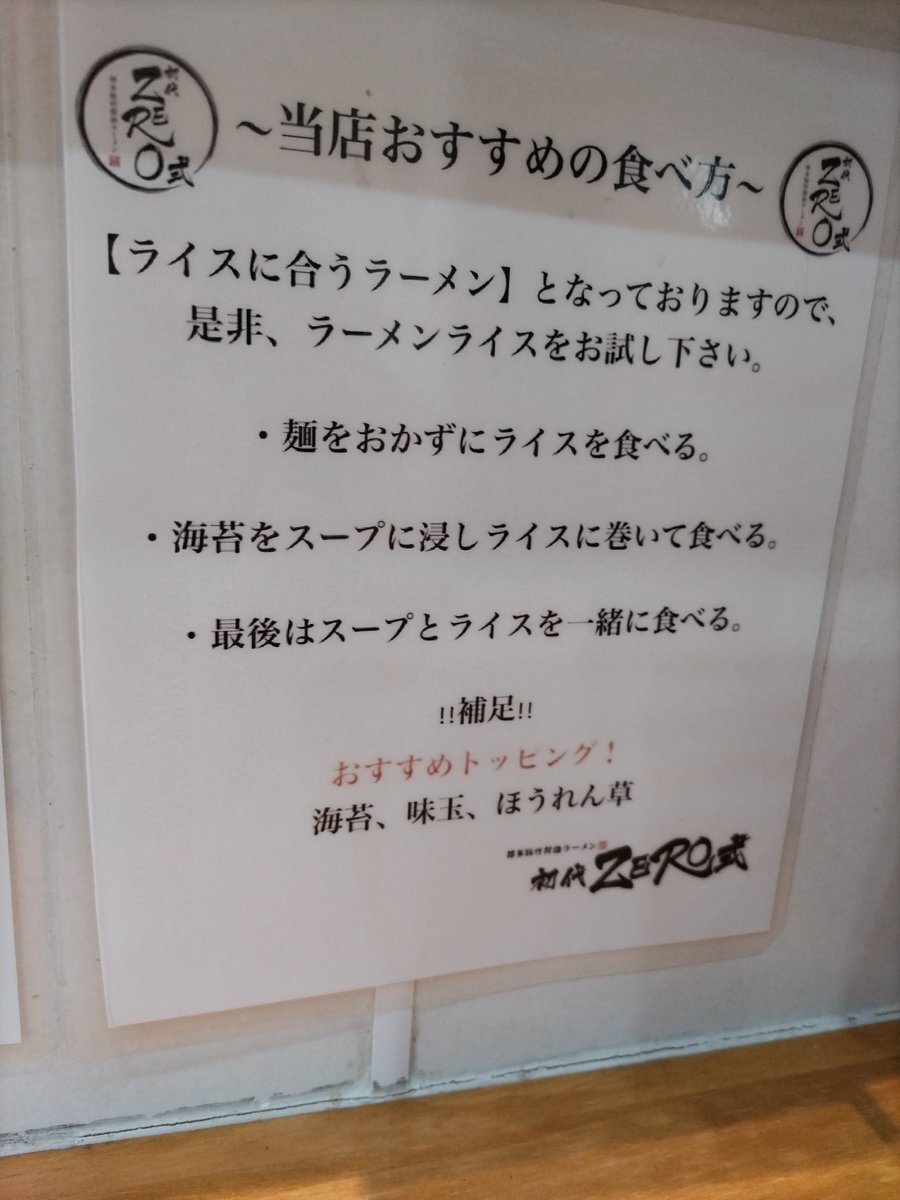 初代
ZERO式
~当店おすすめの食べ方~
初代
ZERO式
【ライスに合うラーメン】となっておりますので、
是非、ラーメンライスをお試し下さい。
・麺をおかずにライスを食べる。
・海苔をスープに浸しライスに巻いて食べる。
・最後はスープとライスを一緒に食べる。
!!補足!!
おすすめトッピング！
海苔、味玉、ほうれん草
博多豚骨醤油ラーメン
初代ZERO式